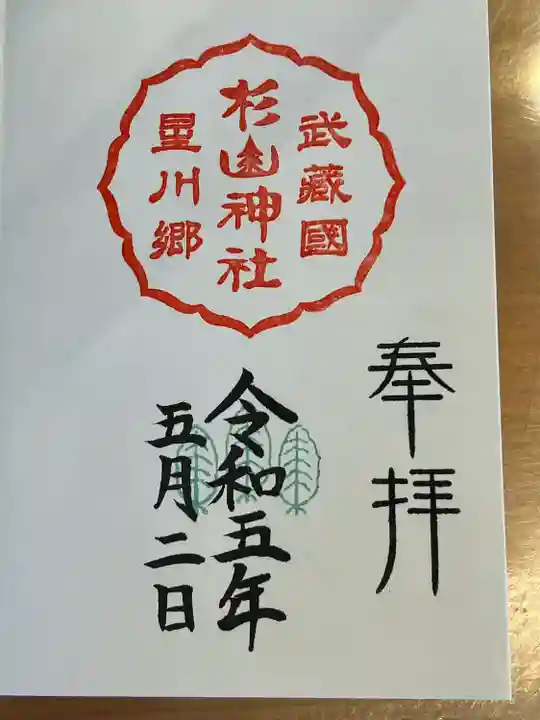 武藏國
杉山神社
星川郷
奉拝
令和五年
五月二日